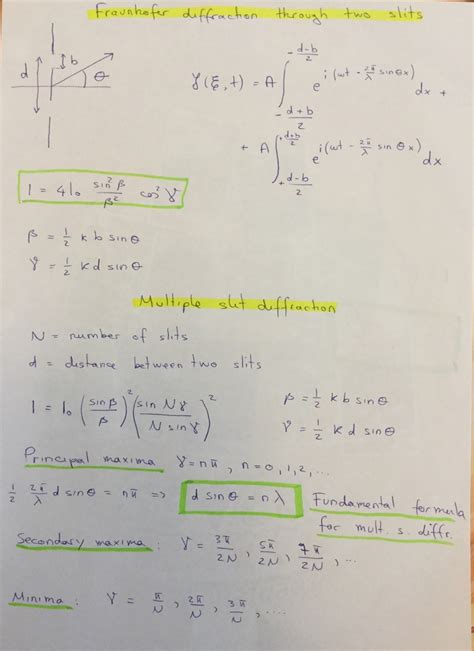 Fraunhofer diffraction through two slits
d b θ
γ(ξ, t) = A ∫_{-\frac{d+b}{2}}^{-\frac{d-b}{2}} e^{i(ωt - \frac{2π}{λ} sinθx)} dx +
+ A ∫_{+\frac{d-b}{2}}^{+\frac{d+b}{2}} e^{i(ωt - \frac{2π}{λ} sin θ x)} dx
I = 4I₀ \frac{sin²β}{β²} cos²γ
β = ½ k b sinθ
γ = ½ k d sinθ
Multiple slit diffraction
N = number of slits
d = distance between two slits
I = I₀ (\frac{sin β}{β})² (\frac{sin Nγ}{N sin γ})²
β = ½ k b sinθ
γ = ½ k d sinθ
Principal maxima γ = nπ , n = 0, 1, 2, ...
½ \frac{2π}{λ} d sinθ = nπ => d sinθ = nλ
Fundamental formula
for mult. s. diffr.
Secondary maxima : γ = \frac{3π}{2N} , \frac{5π}{2N} , \frac{7π}{2N} , ...
Minima : γ = \frac{π}{N} , \frac{2π}{N} , \frac{3π}{N} , ...